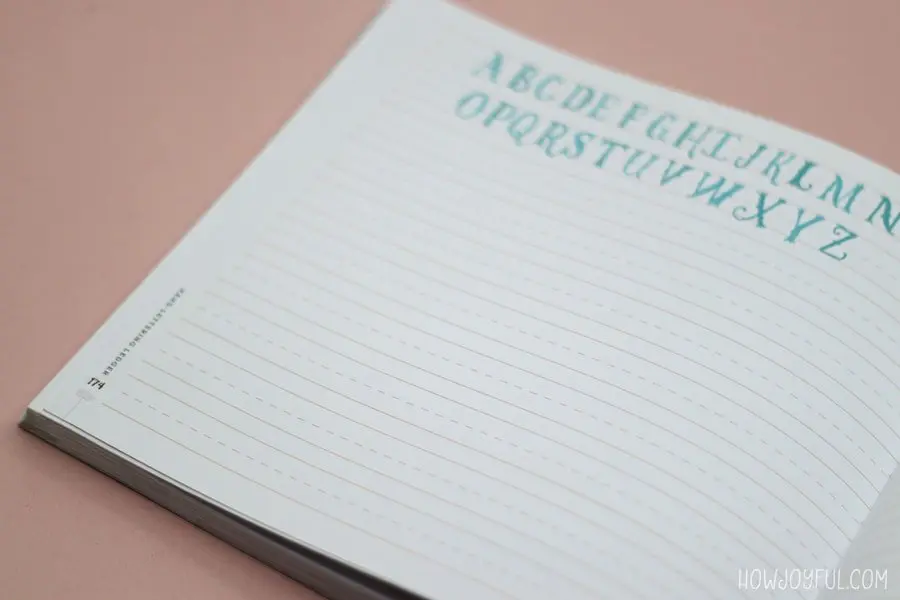 A B C D E F G H I J K L M N
O P Q R S T U V W X Y Z
HAND-LETTERING LEDGER
174
HOWJOYFUL.COM